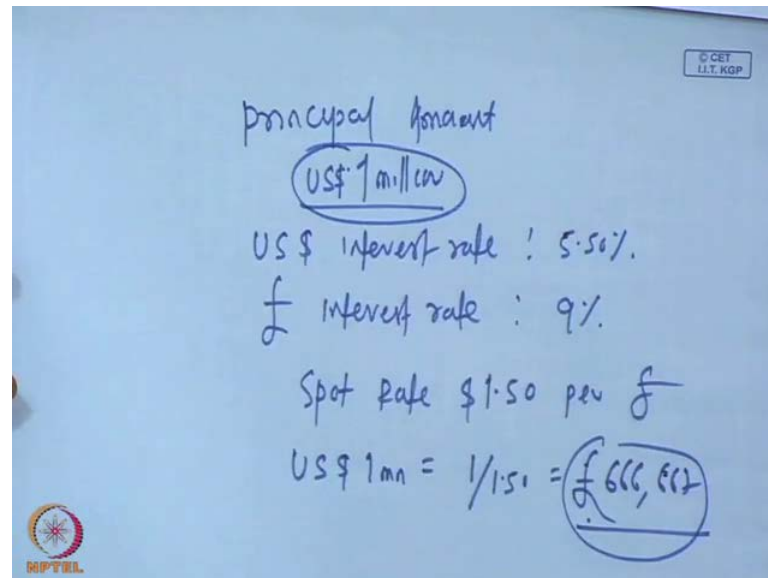 © CET
I.I.T. KGP
principal Amount
US$ 1 million
US $ interest rate : 5.50%.
£ interest rate : 9%.
Spot Rate $1.50 per £
US $ 1mn = 1/1.50 = £ 666,667
NPTEL